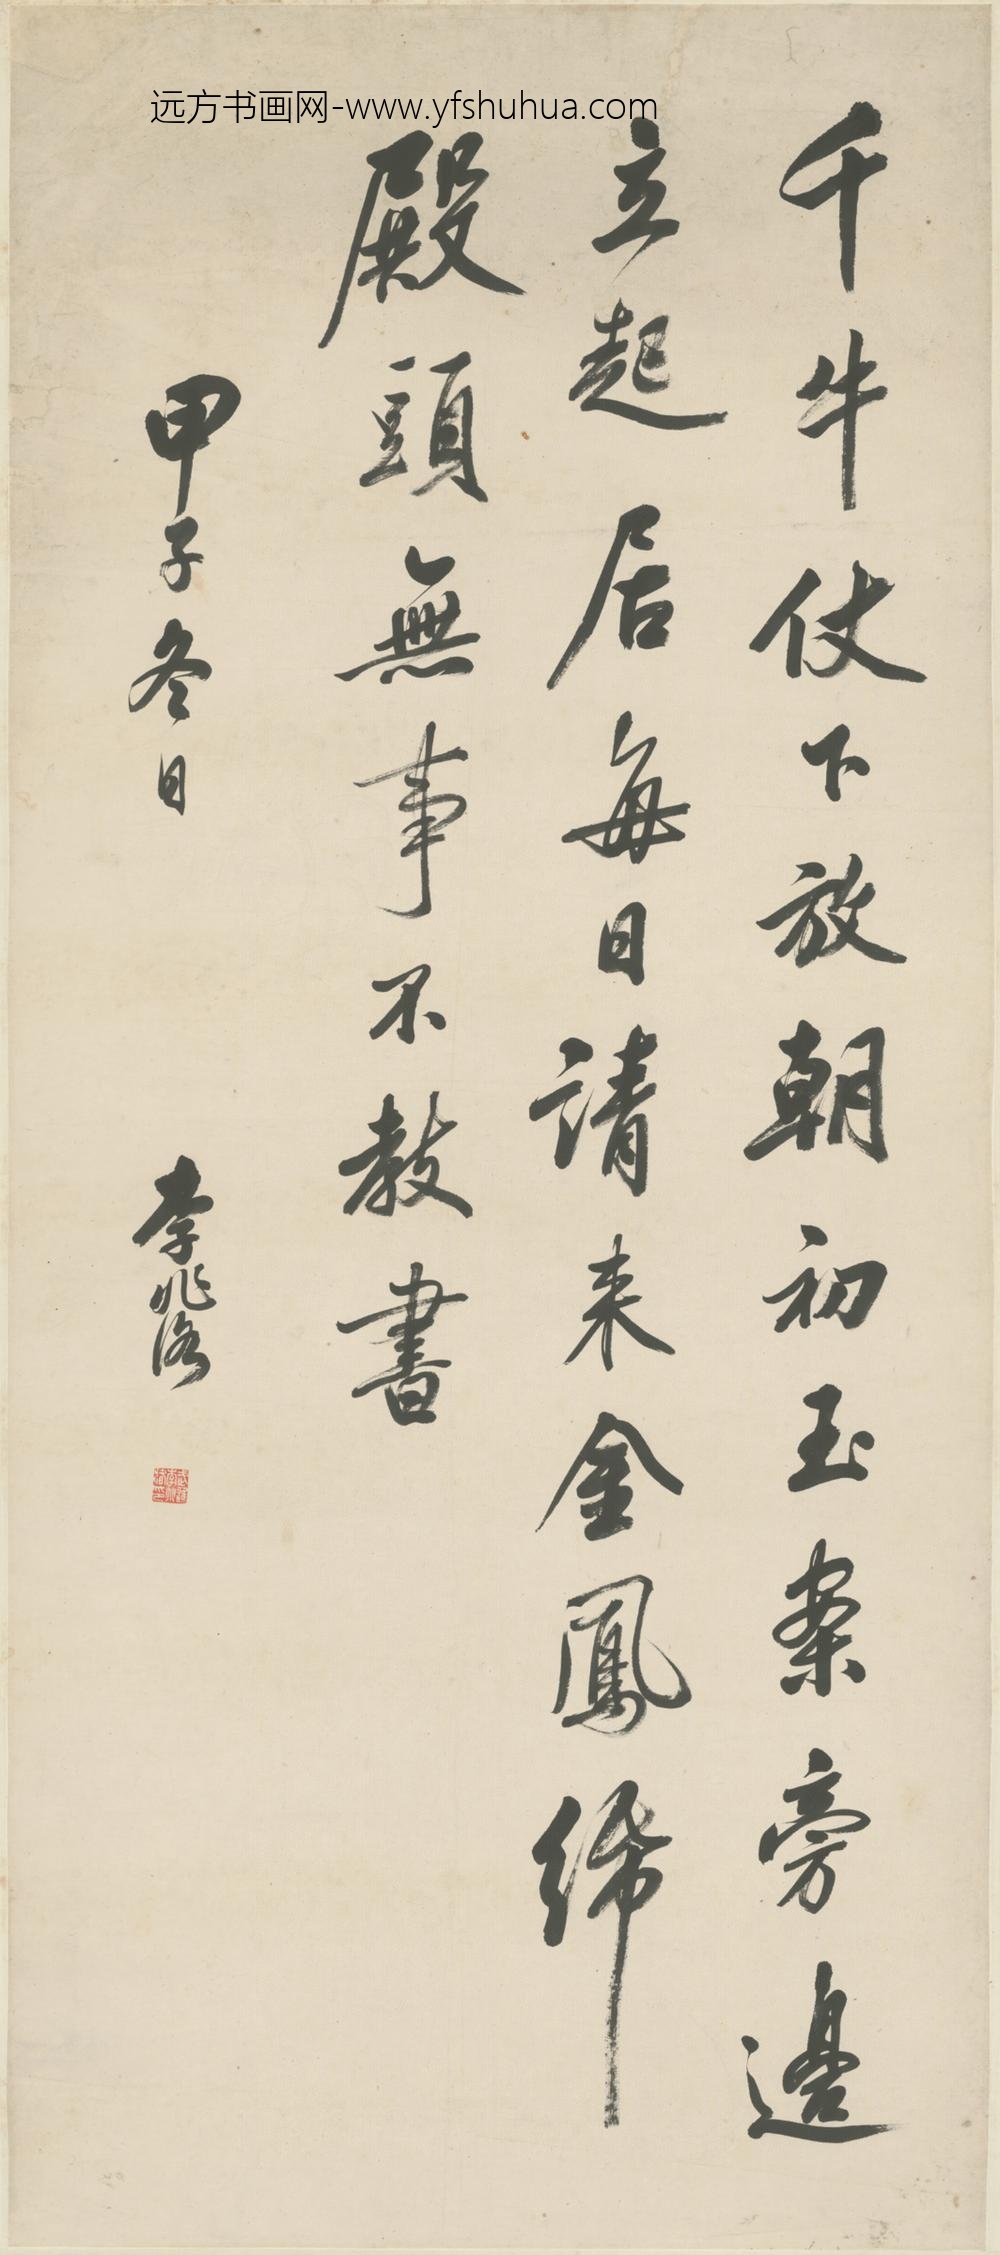 远方书画网-www.yfshuhua.com
千牛仗下放朝初玉案旁邊
立起居每日請来金鳳紙
殿頭無事不教書
甲子冬日
李兆洛